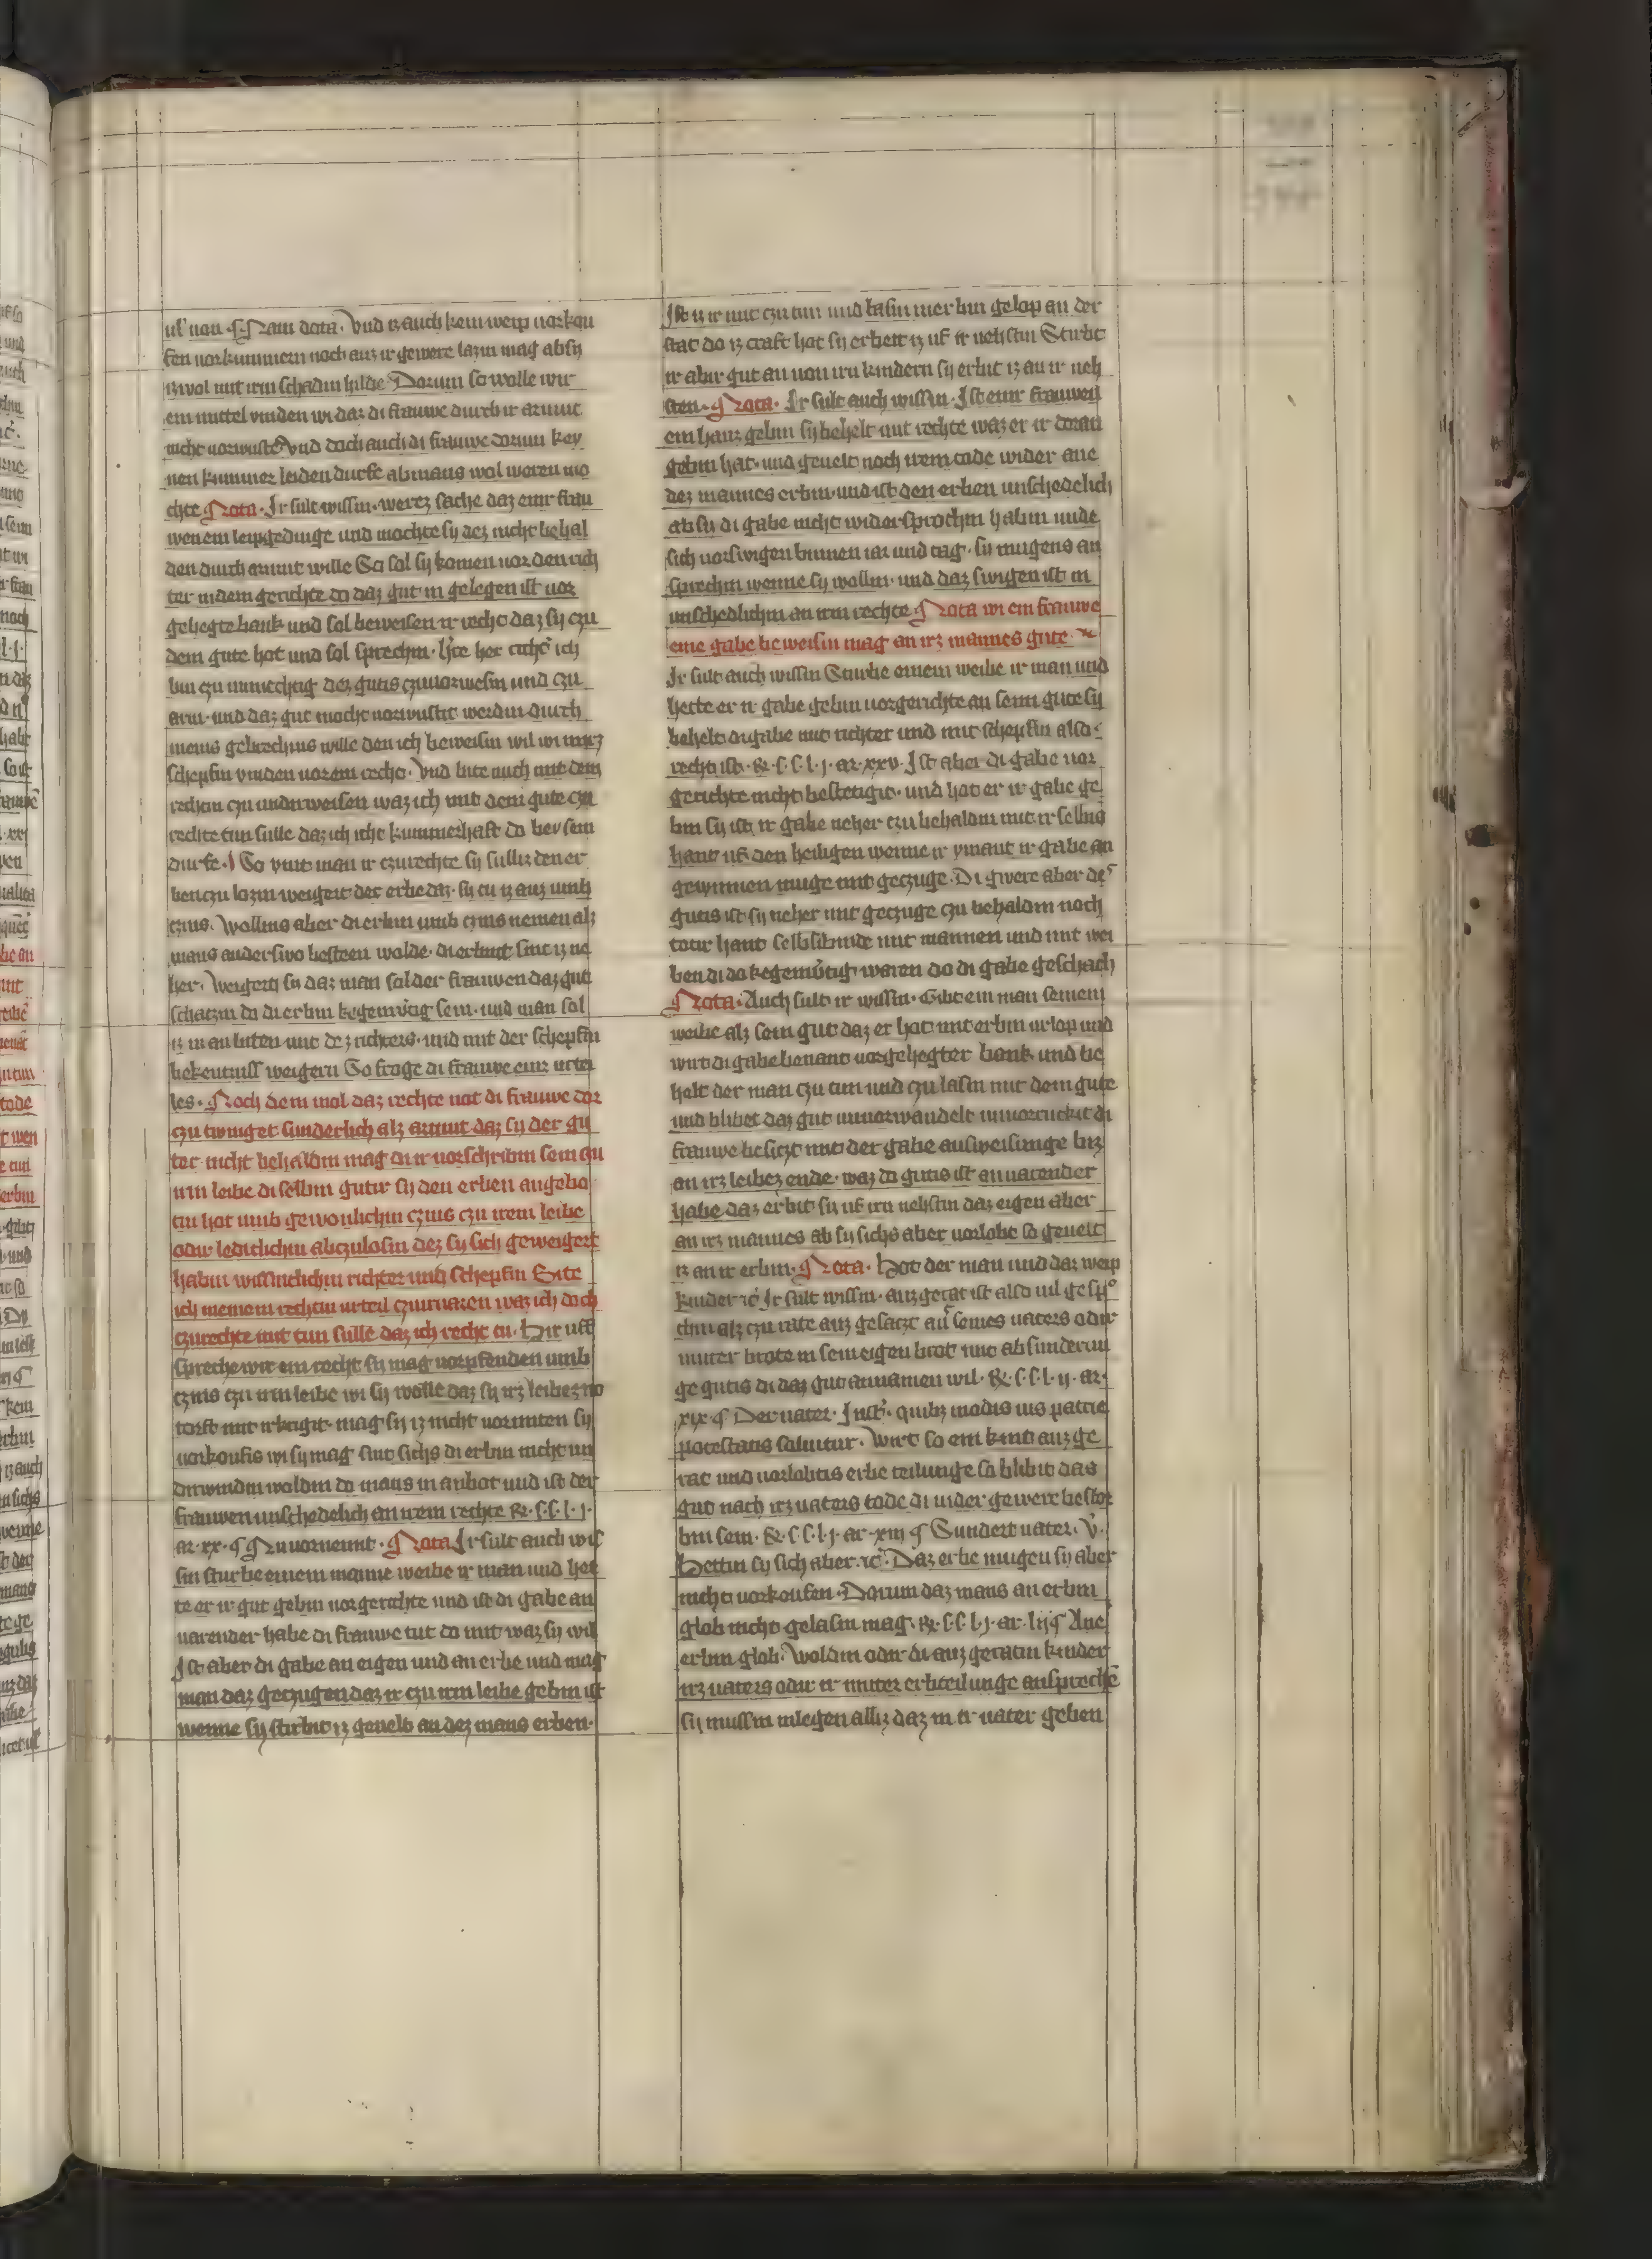 ul' non §. Nam dota. Vnd iz auch kein weip uorkou
fen uorkummern noch auz ir gewere lazin mag ab sy
iz wol mit irm schadin hilde Dorum so wolle wir
ein mittel vinden wi daz di frauwe durch ir armut
nicht uorwuste Vnd doch auch di frauwe dorum key
nen kummer leiden durfe ab mans wol weren mo
chte Nota. Ir sult wissin. werez sache daz einr frau
wen em leipgedinge und mochte sy dez nicht behal
den durch armut wille So sol sy komen uor den rich
ter in dem gerichte do daz gut in gelegen ist uor
gehegte bank und sol beweisen ir recht daz sy czu
dem gute hot und sol sprechin. her richt' ich
bin czu unmechtig dez gutis czuuorwesin und czu
arm. und daz gut mocht uorwustit werdin durch
meins gebrechins wille den ich beweisin wil wi mirz
schepfin vinden uor em recht. Vnd bite auch mit dem
rechtin czu underweisen waz ich mit dem gute czu
rechte tun sulle daz ich icht kummerhaft do bey sein
durfe. So vint man ir czurechte sy sulliz den er
ben czu lozin weigert der erbe daz. sy tu iz auz umb
czins. Wollins aber di erbin umb czins nemen alz
mans anderswo besteen wolde. di erbin sint iz ne
her. Weigern sy daz man sol der frauwen daz gut
schatzin do di erbin kegenwertig sein. und man sol
iz in an biten mit dez richters. und mit der schepfin
bekentniss weigern So froge di frauwe einz urtei
les. Noch dem mol daz rechte not di frauwe dor
czu twinget sunderlich alz armut daz sy der gu
ter nicht behaldin mag di ir uorschribin sein czu
irm leibe di selbin gutir sy den erben angebo
tin hot umb gewonlichin czins czu irem leibe
odir leditlichin abczulosin dez sy sich geweigert
habin wissintlichin richter und schepfin Bite
ich meinem rechtin urteil czuirvaren waz ich doch
czurechte mit tun sulle daz ich recht tu. Hir uff
spreche wir em recht sy mag uorpfenden umb
czins czu irm leibe wi sy wolle daz sy irz leibez no
torft mit irbegit. mag sy iz nicht uormiten sy
uorkoufis wi sy mag sint sichs di erbin nicht un
dirwindin woldin do mans in anbot und ist der
frauwen unschedelich an irem rechte &. s. s. l. j.
ar. xx. § Nu uornemt. Nota Ir sult auch wis
sin sturbe einem manne weibe ir man und het
te er ir gut gebin uor gerichte und ist di gabe an
uarender habe di frauwe tut do mit waz sy wil
Ist aber di gabe an eigen und an erbe und mag
man daz geczugen daz ir czu irm leibe gebin ist
wenne sy stirbit iz geuelt an dez mans erben.
Ist iz ir mit czu tun und lasin in erbin gelop an der
stat do iz craft hot sy erbett iz uf ir nehstin Stirbt
ir abir gut an uon irn kindern sy erbit iz an ir neh
sten. Nota. Ir sult auch wissin. Ist einr frauwen
ein hauz gebin sy behelt mit rechte waz er ir doran
gebin hat. und geuelt noch irem tode wider ane
dez mannes erbin. und ist den erben unschedelich
ab sy di gabe nicht widersprochin habin unde
sich uorswigen binnen iar und tag. sy mugens an
sprechin wenne sy wollin. und daz swigen ist in
unschedlichin an irm rechte Nota wi ein frauwe
eine gabe beweisin mag an irz mannes gute
Ir sult auch wissin Stirbe einem weibe ir man und
hette er ir gabe gebin uorgerichte an seim gute sy
behelt di gabe mit richter und mit schepfin also
recht ist. &. s. s. l. j. ar. xxv. Ist aber di gabe uor
gerichte nicht bestetigit. und hot er ir gabe ge
bin sy ist ir gabe neher czu behaldin mit ir selbis
hant uf den heiligen wenne ir ymant ir gabe an
gewinnen muge mit geczuge. Di gwere aber des
gutis ist sy neher mit geczuge czu behaldin noch
totir hant selbsibinde mit mannen und mit wei
ben di do kegenwertig waren do di gabe geschach
Nota. Auch sult ir wissin. Gibt ein man seinem
weibe alz sein gut daz er hot mit erbin urlop und
wirt di gabe benant uorgehegter bank und be
helt der man czu tun und czu lasin mit dem gute
und blibet daz gut unuorwandelt unuorruckit di
frauwe besiczt mit der gabe ausweisunge biz
an irz leibez ende. waz do gutis ist an uarender
habe daz erbit sy uf irn nehstin daz eigen aber
an irz mannes ab sy sichs aber uorlobt so geuelt
iz an ir erbin. Nota. Hot der man und daz weip
kinder ic. Ir sult wissin. auz gerat ist also uil gespro
chin alz czu rate auz gesatzt an seines uaters odir
muter brote in sein eigen brot mit absunderun
ge gutis di daz gut annamen wil. &. s. s. l. ij. ar.
xix § Der uater. Inst'. quibz modis ius patrie
potestatis soluitur. Wirt so ein kint auz ge
rat und uorlobtis erbe teilunge so blibit das
gut nach irz uaters tode di in der gewere bestor
bin sein. &. s. s. l. j. ar. xiij § Sundert uater. V.
Hettin sy sich aber. ic. Daz erbe mugen sy aber
nicht uorkoufen. Dorum daz mans an erbin
glob nicht gelasin mag. &. s. s. l. j. ar. lij § Ane
erbin glob. Woldin odir di auz geratin kinder
irz uaters odir ir muter erbteilunge anspreche
sy mussin inlegen alliz daz in ir uater geben